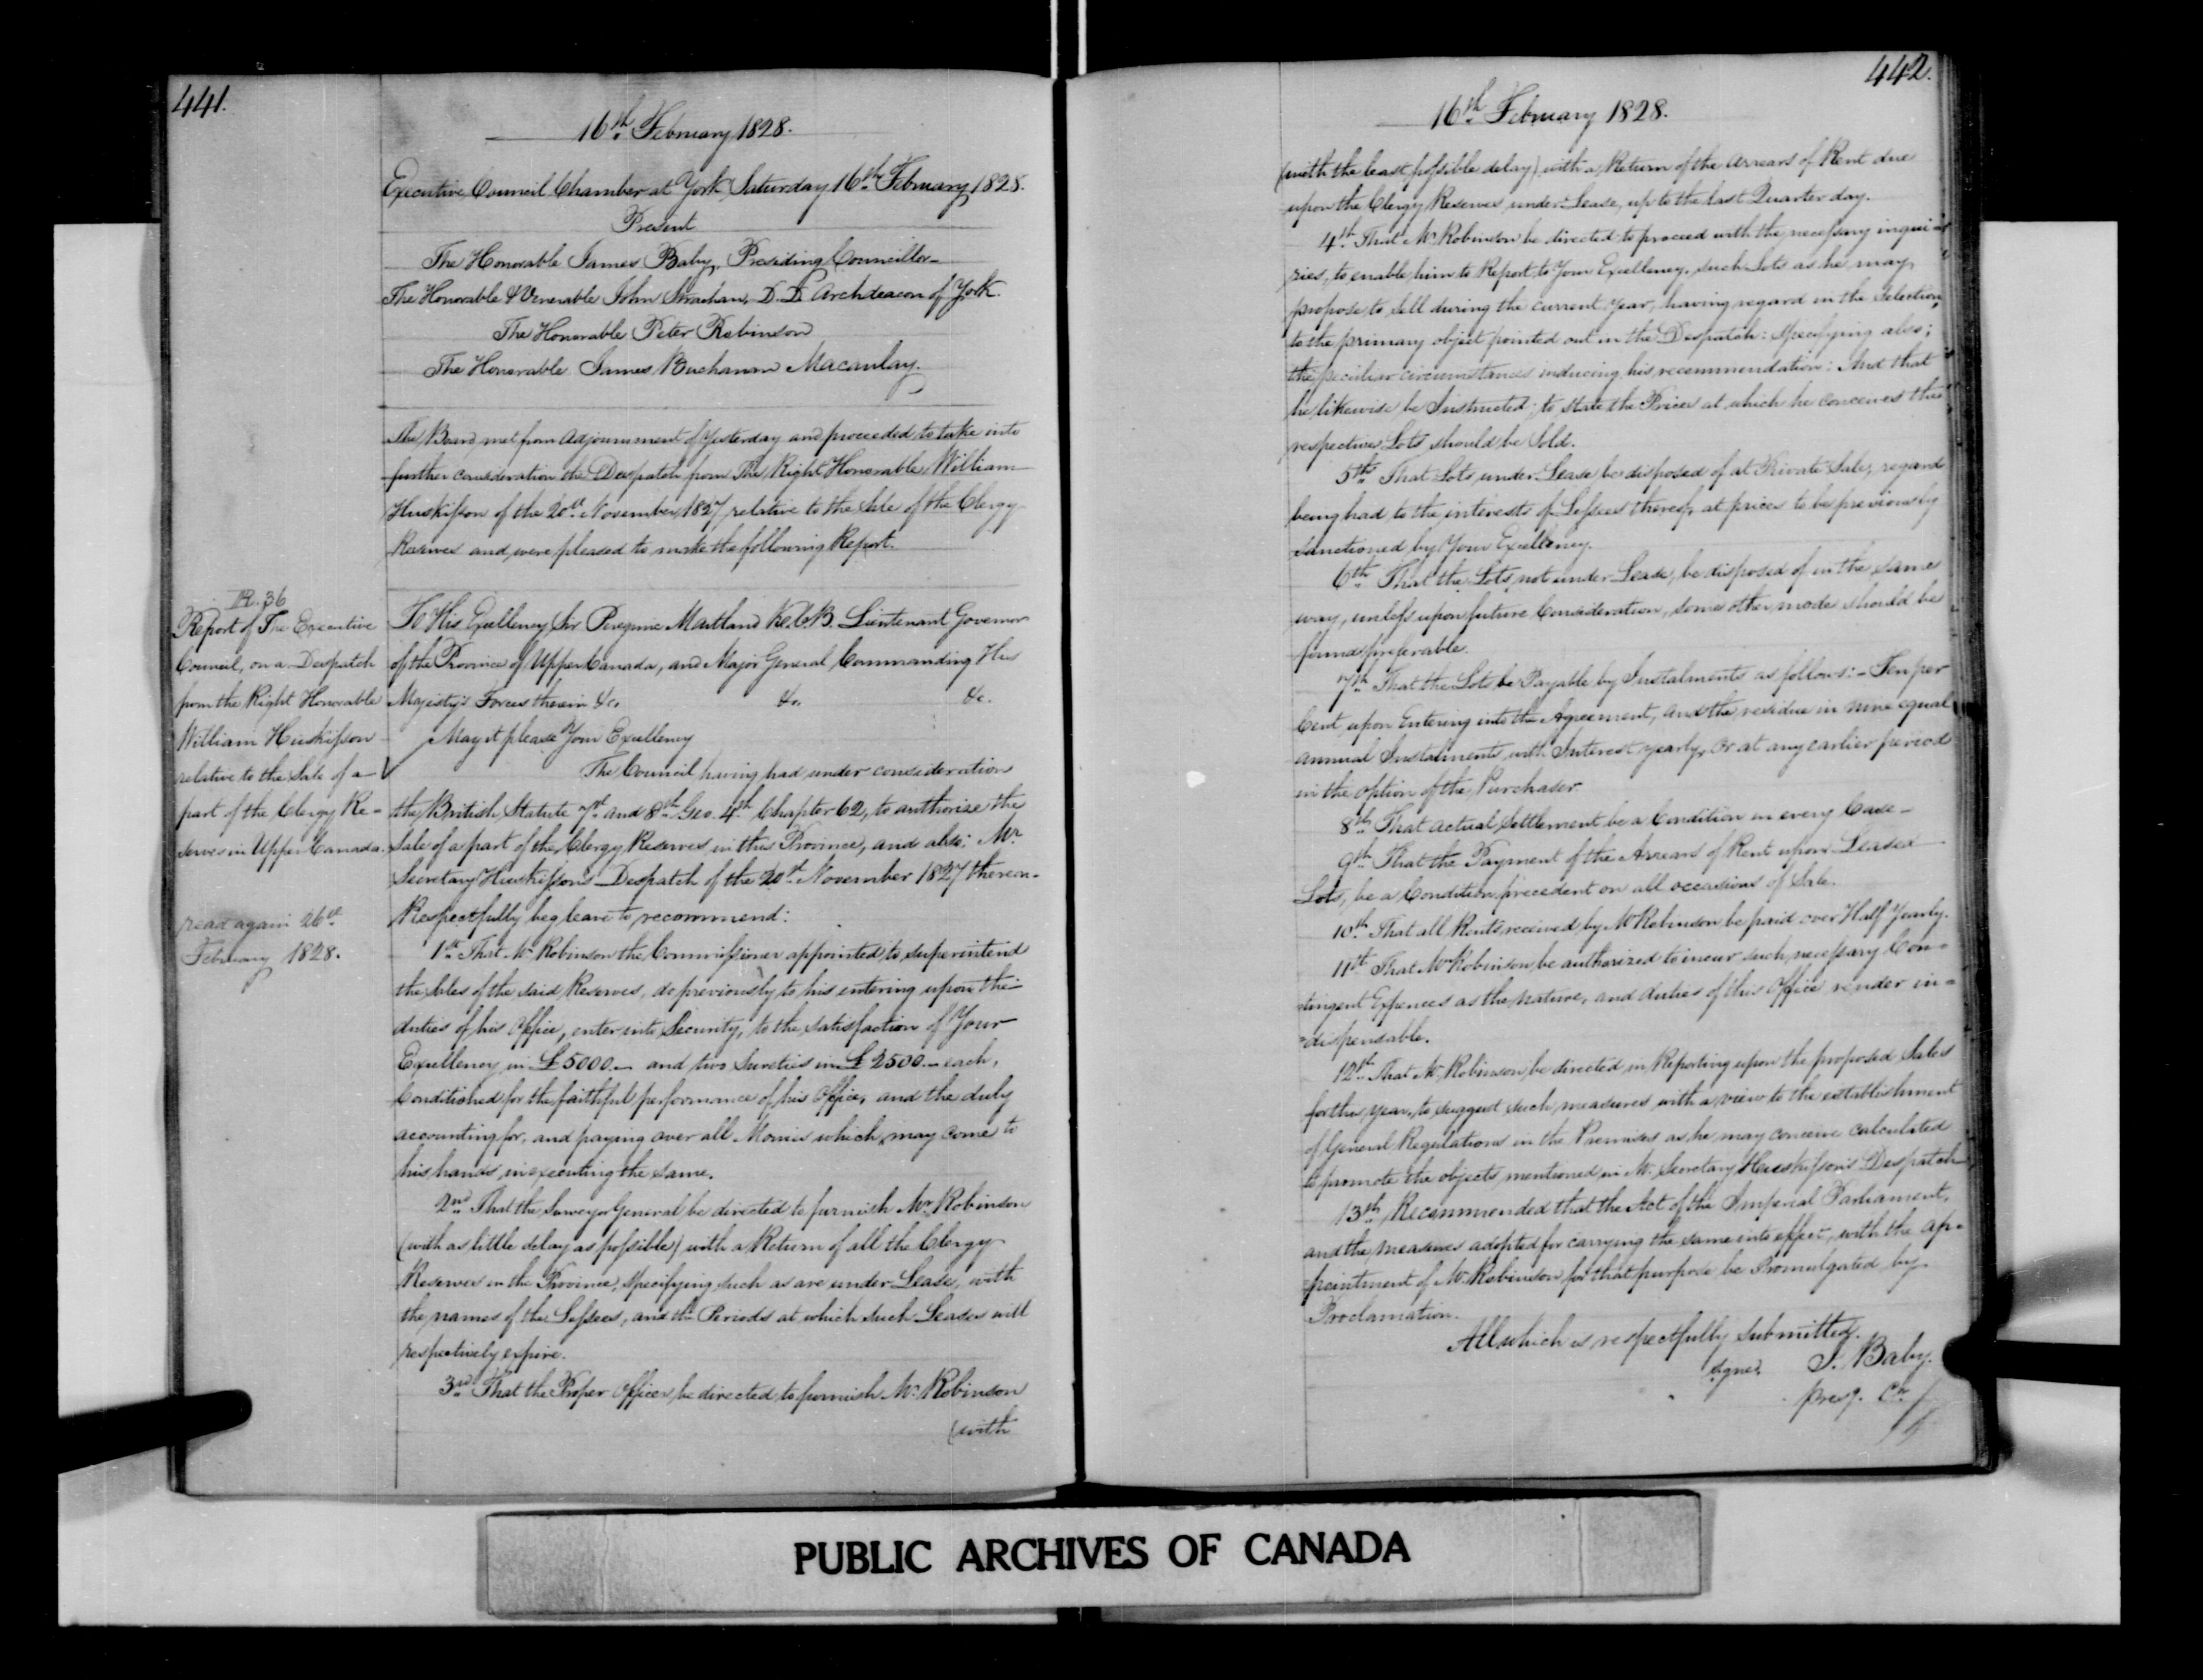 441.
16th February 1828.
Executive Council Chamber at York Saturday 16th February 1828.
Present
The Honorable James Baby, Presiding Councillor
The Honorable & Venerable John Strachan, D.D. Archdeacon of York.
The Honorable Peter Robinson
The Honorable James Buchanan Macaulay.
The Board met from adjournment of Yesterday and proceeded to take into
further consideration the Despatch from The Right Honorable William
Huskisson of the 20th November 1827 relative to the Sale of the Clergy
Reserves and were pleased to make the following Report.
R. 36
Report of The Executive
Council, on a Despatch
from the Right Honorable
William Huskisson
relative to the Sale of a
part of the Clergy Re-
serves in Upper Canada.
read again 26th
February 1828.
To His Excellency Sir Peregrine Maitland K.C.B. Lieutenant Governor
of the Province of Upper Canada, and Major General Commanding His
Majesty's Forces therein &c. &c. &c.
May it please Your Excellency
The Council having had under consideration
the British Statute 7th and 8th Geo. 4th Chapter 62, to authorize the
Sale of a part of the Clergy Reserves in this Province, and also: Mr.
Secretary Huskisson's Despatch of the 20th November 1827 thereon-
Respectfully beg leave to recommend:
1st That Mr Robinson the Commissioner appointed to superintend
the Sales of the said Reserves, do previously to his entering upon the
duties of his Office, enter into Security, to the satisfaction of Your
Excellency in £5000.— and two Sureties in £2500.— each,
Conditioned for the faithful performance of his Office, and the duly
accounting for, and paying over all Monies which may come to
his hands in executing the same.
2nd That the Surveyor General be directed to furnish Mr Robinson
(with as little delay as possible) with a Return of all the Clergy
Reserves in the Province, specifying such as are under Lease, with
the names of the Lessees, and the Periods at which such Leases will
respectively expire.
3rd That the Proper Officer be directed to furnish Mr Robinson
(with
442.
16th February 1828.
(with the least possible delay) with a Return of the arrears of Rent due
upon the Clergy Reserves under Lease, up to the last Quarter day.
4th That Mr Robinson be directed to proceed with the necessary inqui-
ries, to enable him to Report to Your Excellency, such Lots as he may
propose to sell during the current year, having regard in the Selection,
to the primary object pointed out in the Despatch: specifying also;
the peculiar circumstances inducing his recommendation: And that
he likewise be Instructed; to state the Prices at which he conceives the
respective Lots should be Sold.
5th That Lots under Lease be disposed of at Private Sale, regard
being had to the interests of Lessees thereof, at prices to be previously
sanctioned by Your Excellency.
6th That the Lots not under Lease, be disposed of in the same
way, unless upon future Consideration, some other mode should be
found preferable.
7th That the Lots be Payable by Instalments as follows:- Ten per
Cent upon Entering into the Agreement, and the residue in nine equal
annual Instalments with Interest yearly, Or at any earlier period
in the option of the Purchaser
8th That actual Settlement be a Condition in every Case-
9th That the Payment of the Arrears of Rent upon Leased
Lots, be a Condition precedent on all occasions of Sale.
10th That all Rents received by Mr Robinson be paid over Half Yearly.
11th That Mr Robinson be authorized to incur such necessary Con-
tingent Expences as the nature, and duties of this Office render in-
=dispensable.
12th That Mr Robinson be directed in Reporting upon the proposed Sales
for this year, to suggest such measures with a view to the establishment
of General Regulations in the Premises as he may conceive calculated
to promote the objects mentioned in Mr Secretary Huskisson's Despatch
13th Recommended that the Act of the Imperial Parliament,
and the measures adopted for carrying the same into effect, with the ap-
pointment of Mr Robinson for that purpose be Promulgated by
Proclamation.
All which is respectfully submitted.
signed J. Baby.
Presg. Cr
PUBLIC ARCHIVES OF CANADA